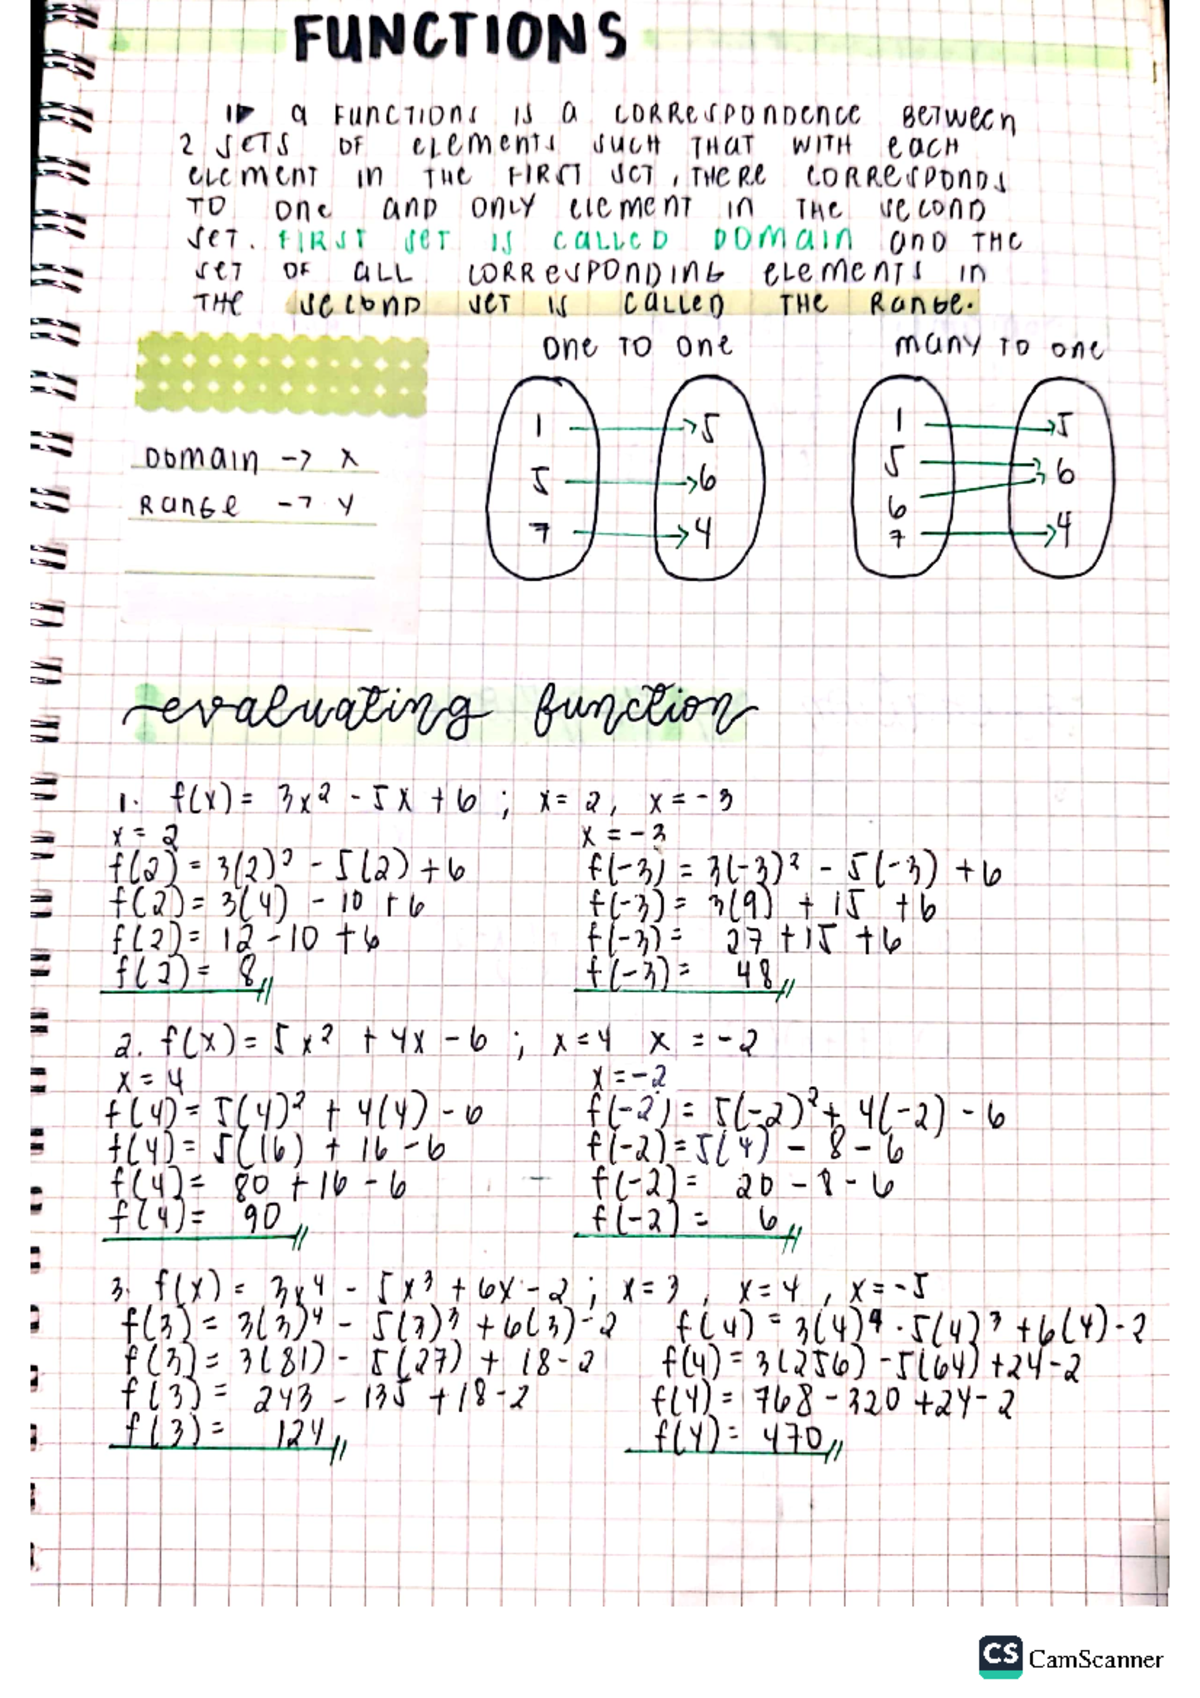 FUNCTIONS
a FUNCTIONS IS a CORRESPONDENCE BETWEEN
2 SETS OF ELEMENTS SUCH THAT WITH EACH
ELEMENT IN THE FIRST SET, THERE CORRESPONDS
TO ONE AND ONLY ELEMENT IN THE SECOND
SET. FIRST SET IS CALLED DOMAIN AND THE
SET OF ALL CORRESPONDING ELEMENTS IN
THE SECOND SET IS CALLED THE RANGE.
ONE TO ONE
MANY TO ONE
1 → 5
5 → 6
7 → 4
1 → 5
5 → 6
6
7 → 4
DOMAIN → X
RANGE → Y
evaluating function
1. f(x) = 3x² - 5x + 6 ; x = 2, x = -3
x = 2
f(2) = 3(2)² - 5(2) + 6
f(2) = 3(4) - 10 + 6
f(2) = 12 - 10 + 6
f(2) = 8
x = -3
f(-3) = 3(-3)² - 5(-3) + 6
f(-3) = 3(9) + 15 + 6
f(-3) = 27 + 15 + 6
f(-3) = 48
2. f(x) = 5x² + 4x - 6 ; x = 4 x = -2
x = 4
f(4) = 5(4)² + 4(4) - 6
f(4) = 5(16) + 16 - 6
f(4) = 80 + 16 - 6
f(4) = 90
x = -2
f(-2) = 5(-2)² + 4(-2) - 6
f(-2) = 5(4) - 8 - 6
f(-2) = 20 - 8 - 6
f(-2) = 6
3. f(x) = 3x⁴ - 5x³ + 6x - 2 ; x = 3, x = 4, x = -5
f(3) = 3(3)⁴ - 5(3)³ + 6(3) - 2
f(3) = 3(81) - 5(27) + 18 - 2
f(3) = 243 - 135 + 18 - 2
f(3) = 124
f(4) = 3(4)⁴ - 5(4)³ + 6(4) - 2
f(4) = 3(256) - 5(64) + 24 - 2
f(4) = 768 - 320 + 24 - 2
f(4) = 470
CS CamScanner